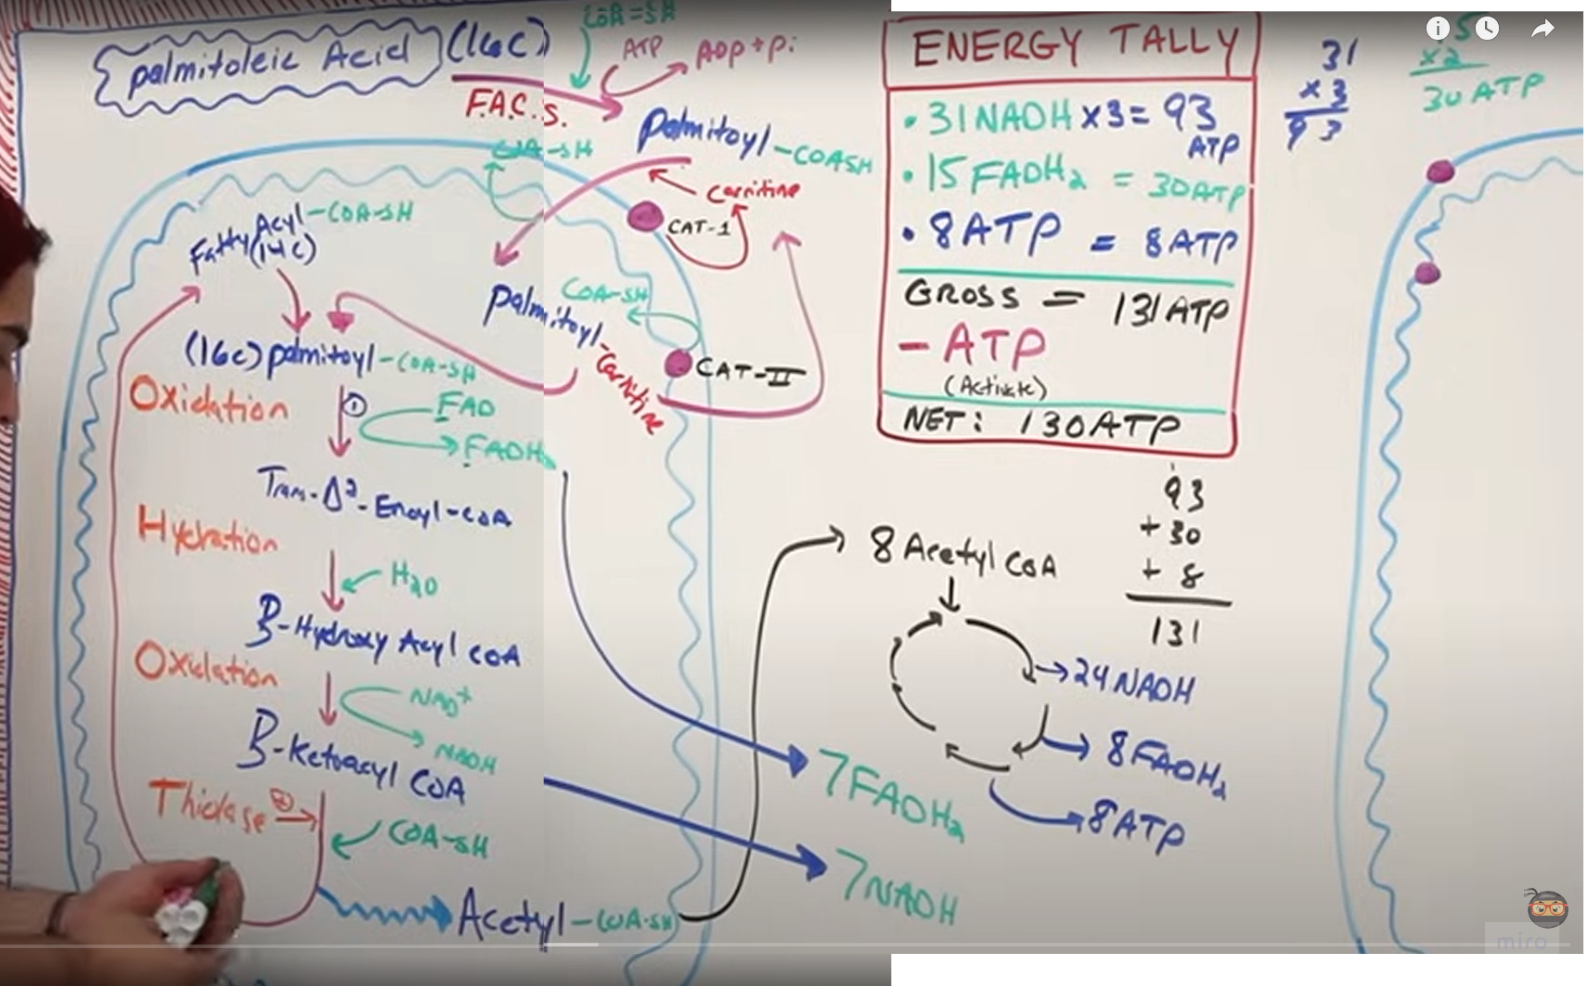 palmitoleic Acid (16C)
COA-SH
ATP
ADP+Pi
F.A.C.S.
palmitoyl-COASH
COA-SH
Carnitine
CAT-1
Fatty Acyl-COA-SH
(14C)
palmitoyl-Carnitine
COA-SH
CAT-II
(16C) palmitoyl-COA-SH
Oxidation
①
FAD
FADH2
Trans-Δ2-Enoyl-COA
Hydration
H2O
β-Hydroxy Acyl COA
Oxidation
NAD+
NADH
β-Ketoacyl COA
Thiolase
COA-SH
Acetyl-COA-SH
ENERGY TALLY
• 31NADH x3= 93 ATP
• 15FADH2 = 30ATP
• 8ATP = 8ATP
GROSS = 131ATP
- ATP
(Activate)
NET: 130ATP
31
x3
93
5
x2
30 ATP
93
+ 30
+ 8
131
8 Acetyl COA
24NADH
8FADH2
8ATP
7FADH2
7NADH
miro